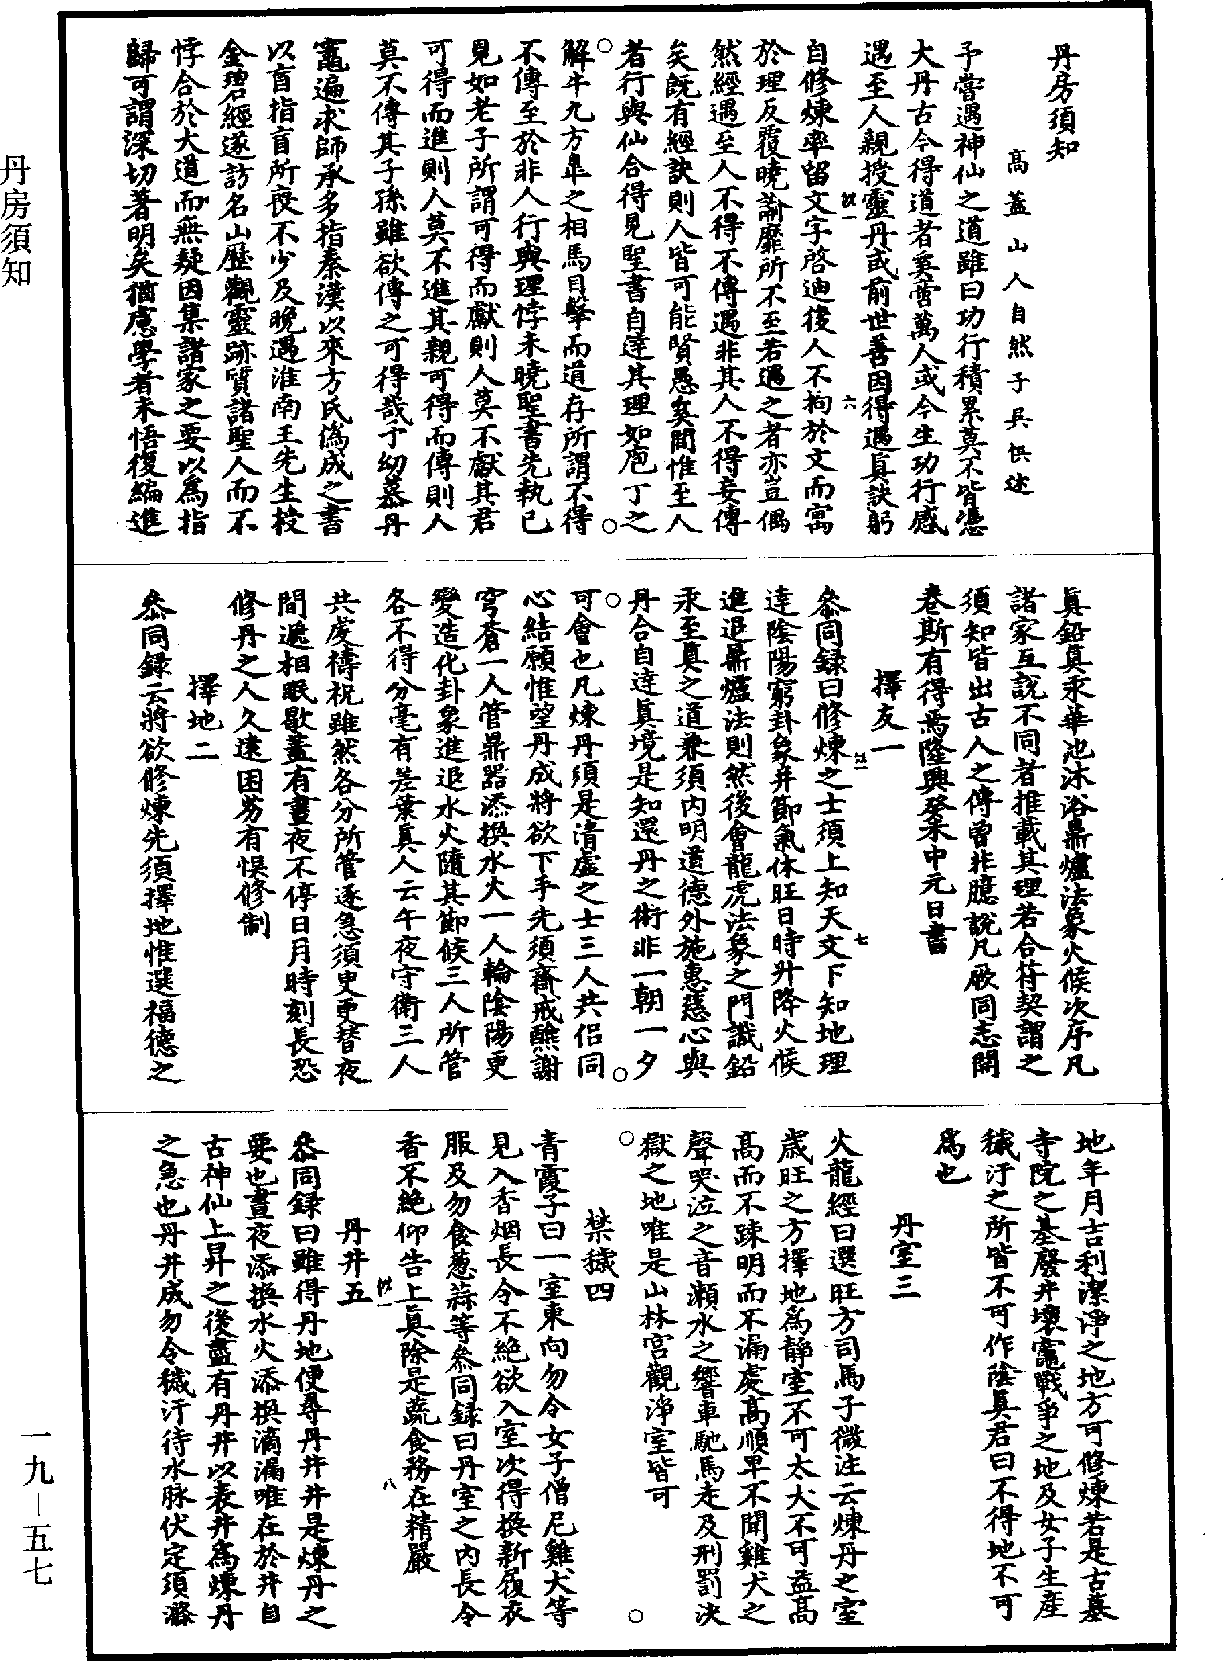 丹房須知
高蓋山人自然子吳悞述
予嘗遇神仙之道雖曰功行積累莫不皆憑
大丹古今得道者奚啻萬人或今生功行感
遇至人親授靈丹或前世善因得遇真訣躬
自修煉率留文字啓迪後人不拘於文而寓
於理反覆曉諭靡所不至若遇之者亦豈偶
然經遇至人不得不傳遇非其人不得妄傳
矣既有經訣則人皆可能賢愚奚間惟至人
者行與仙合得見聖書自達其理如庖丁之
解牛九方臯之相馬目擊而道存所謂不得
不傳至於非人行與理悖未曉聖書先執已
見如老子所謂可得而獻則人莫不獻其君
可得而進則人莫不進其親可得而傳則人
莫不傳其子孫雖欲傳之可得哉予幼慕丹
竈遍求師承多指秦漢以來方氏偽成之書
以盲指盲所喪不少及晚遇淮南王先生授
金碧經遂訪名山歷觀靈跡質諸聖人而不
悖合於大道而無疑因集諸家之要以為指
歸可謂深切著明矣猶慮學者未悟復編進
真鉛真汞華池沐浴鼎爐法象火候次序凡
諸家互說不同者推載其理若合符契謂之
須知皆出古人之傳曾非臆說凡厥同志開
卷斯有得焉隆興癸未中元日書
擇友一
叅同録曰修煉之士須上知天文下知地理
達陰陽窮卦象并節氣休旺日時升降火候
進退鼎爐法則然後會龍虎法象之門識鉛
汞至真之道兼須内明道德外施惠慈心與
丹合自達真境是知還丹之術非一朝一夕
可會也凡煉丹須是清虛之士三人共侣同
心結願惟望丹成將欲下手先須齋戒醮謝
穹蒼一人管鼎器添換水火一人輪陰陽更
變造化卦象進退水火隨其節候三人所管
各不得分毫有差葉真人云午夜守衛三人
共虔禱祝雖然各分所管逐急須更更替夜
間遞相眠歇蓋有晝夜不停日月時刻長恐
修丹之人久遠困劣有悞修制
擇地二
叅同録云將欲修煉先須擇地惟選福德之
地年月吉利潔淨之地方可修煉若是古墓
寺院之基廢井壞竈戰爭之地及女子生產
穢汙之所皆不可作陰真君曰不得地不可
為也
丹室三
火龍經曰選旺方司馬子微注云煉丹之室
歲旺之方擇地為靜室不可太大不可益高
高而不踈明而不漏處高順卑不聞雞犬之
聲哭泣之音瀨水之響車馳馬走及刑罰決
獄之地唯是山林宮觀淨室皆可
禁穢四
青霞子曰一室東向勿令女子僧尼雞犬等
見入香烟長令不絶欲入室次得換新履衣
服及勿食葱蒜等叅同録曰丹室之内長令
香不絶仰告上真除是蔬食務在精嚴
丹井五
叅同録曰雖得丹地便尋丹井井是煉丹之
要也晝夜添換水火添換滴漏唯在於井自
古神仙上昇之後盡有丹井以表井為煉丹
之急也丹井成勿令穢汙待水脉伏定須滌
丹房須知
一九—五七